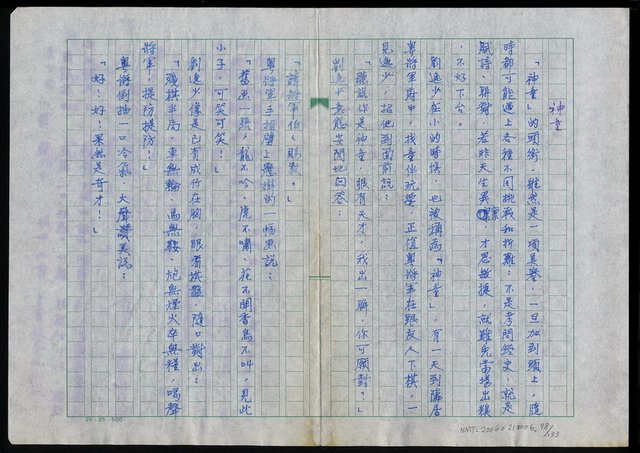 神童
「神童」的頭銜，雖然是一項美譽，一旦加到頭上，隨
時都可能遇上各種不同挑戰和折難；不是考問經史，就是
賦詩、聯對，若非天生異稟，才思敏捷，就難免當場出糗
，不好下台。
劉進少在小的時候，也被稱為「神童」，有一天到隣居
粤將軍府中，找童伴玩樂，正值粤將軍在跟友人下棋，一
見進少，招他到面前說：
「聽說你是神童，很有天才，我出一聯，你可願對。」
劉進少意態安閒地回答：
「請將軍伯伯賜教。」
粤將軍手指壁上疊掛的一幅畫說：
「舊畫一張，龍不吟、虎不嘯、花不聞香鳥不叫，見此
小子，可笑可笑！」
劉進少像是已有成竹在胸，眼看棋盤，隨口對出：
「殘棋半局，車無輪、馬無鞍、炮無煙火卒無糧，喝聲
將軍，提防提防！」
粤將倒抽一口冷氣，大聲讚美說：
「好！好！果然是奇才！」
20×25=500
NMTL20060210006.98/133